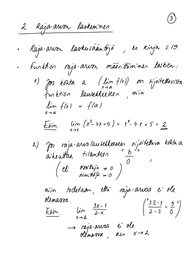 3
2 Raja-arvon laskeminen
• Raja-arvon laskusääntöjä, ks. kirja s. 19
• Funktion raja-arvon määrittäminen laskien:
1) Jos kohta a (lim f(x)) on sijoitettavissa
x→a
funktion lausekkeeseen, niin
lim f(x) = f(a)
x→a
Esim. lim (x²-4x+5) = 1²-4·1+5 = 2
x→1
2) Jos raja-arvolausekkeeseen sijoitettava kohta a
aiheuttaa tilanteen = b/0,
(eli osoittaja ≠ 0
nimittäjä = 0)
niin todetaan, että raja-arvoa ei ole
olemassa.
Esim. lim (3x-1)/(2-x) (= (3·2-1)/(2-2) = 5/0)
x→2
→ raja-arvoa ei ole
olemassa, kun x→2